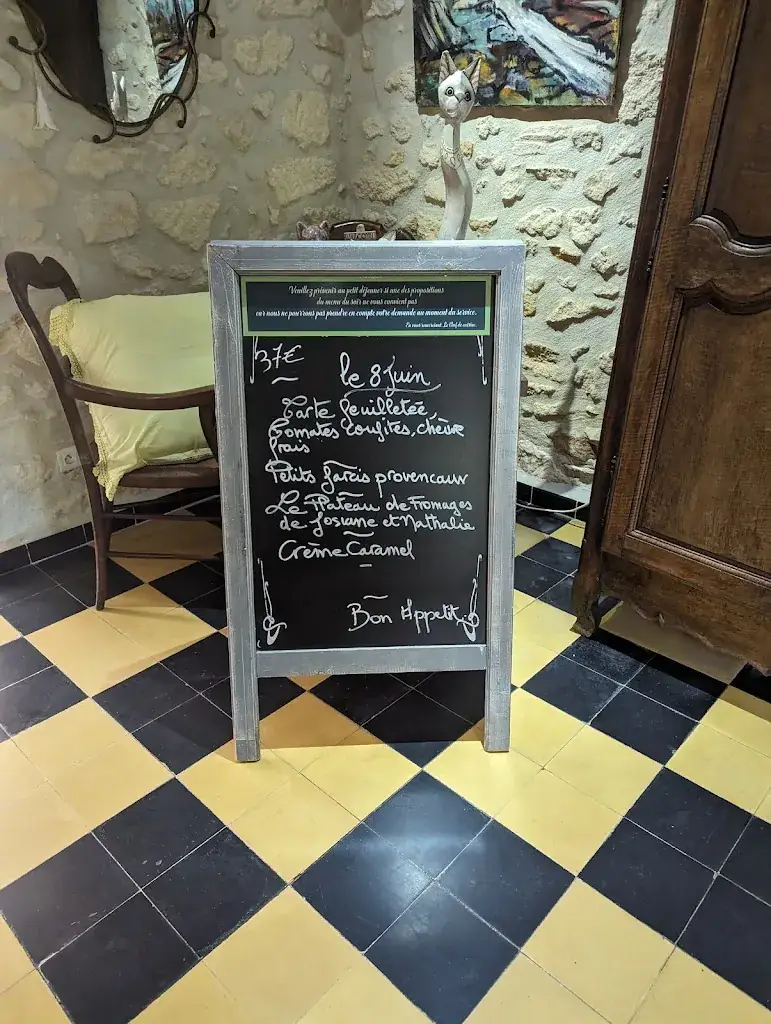 Veuillez prévenir au petit déjeuner si une des propositions
du menu du soir ne vous convient pas
car nous ne pourrons pas prendre en compte votre demande au moment du service.
En vous remerciant. Le Chef de cuisine.
37€
le 8 Juin
Tarte feuilletée,
Tomates confites, chèvre
frais
Petits farcis provencaux
Le Plateau de Fromages
de Josiane et Nathalie
Crème Caramel
Bon Appetit